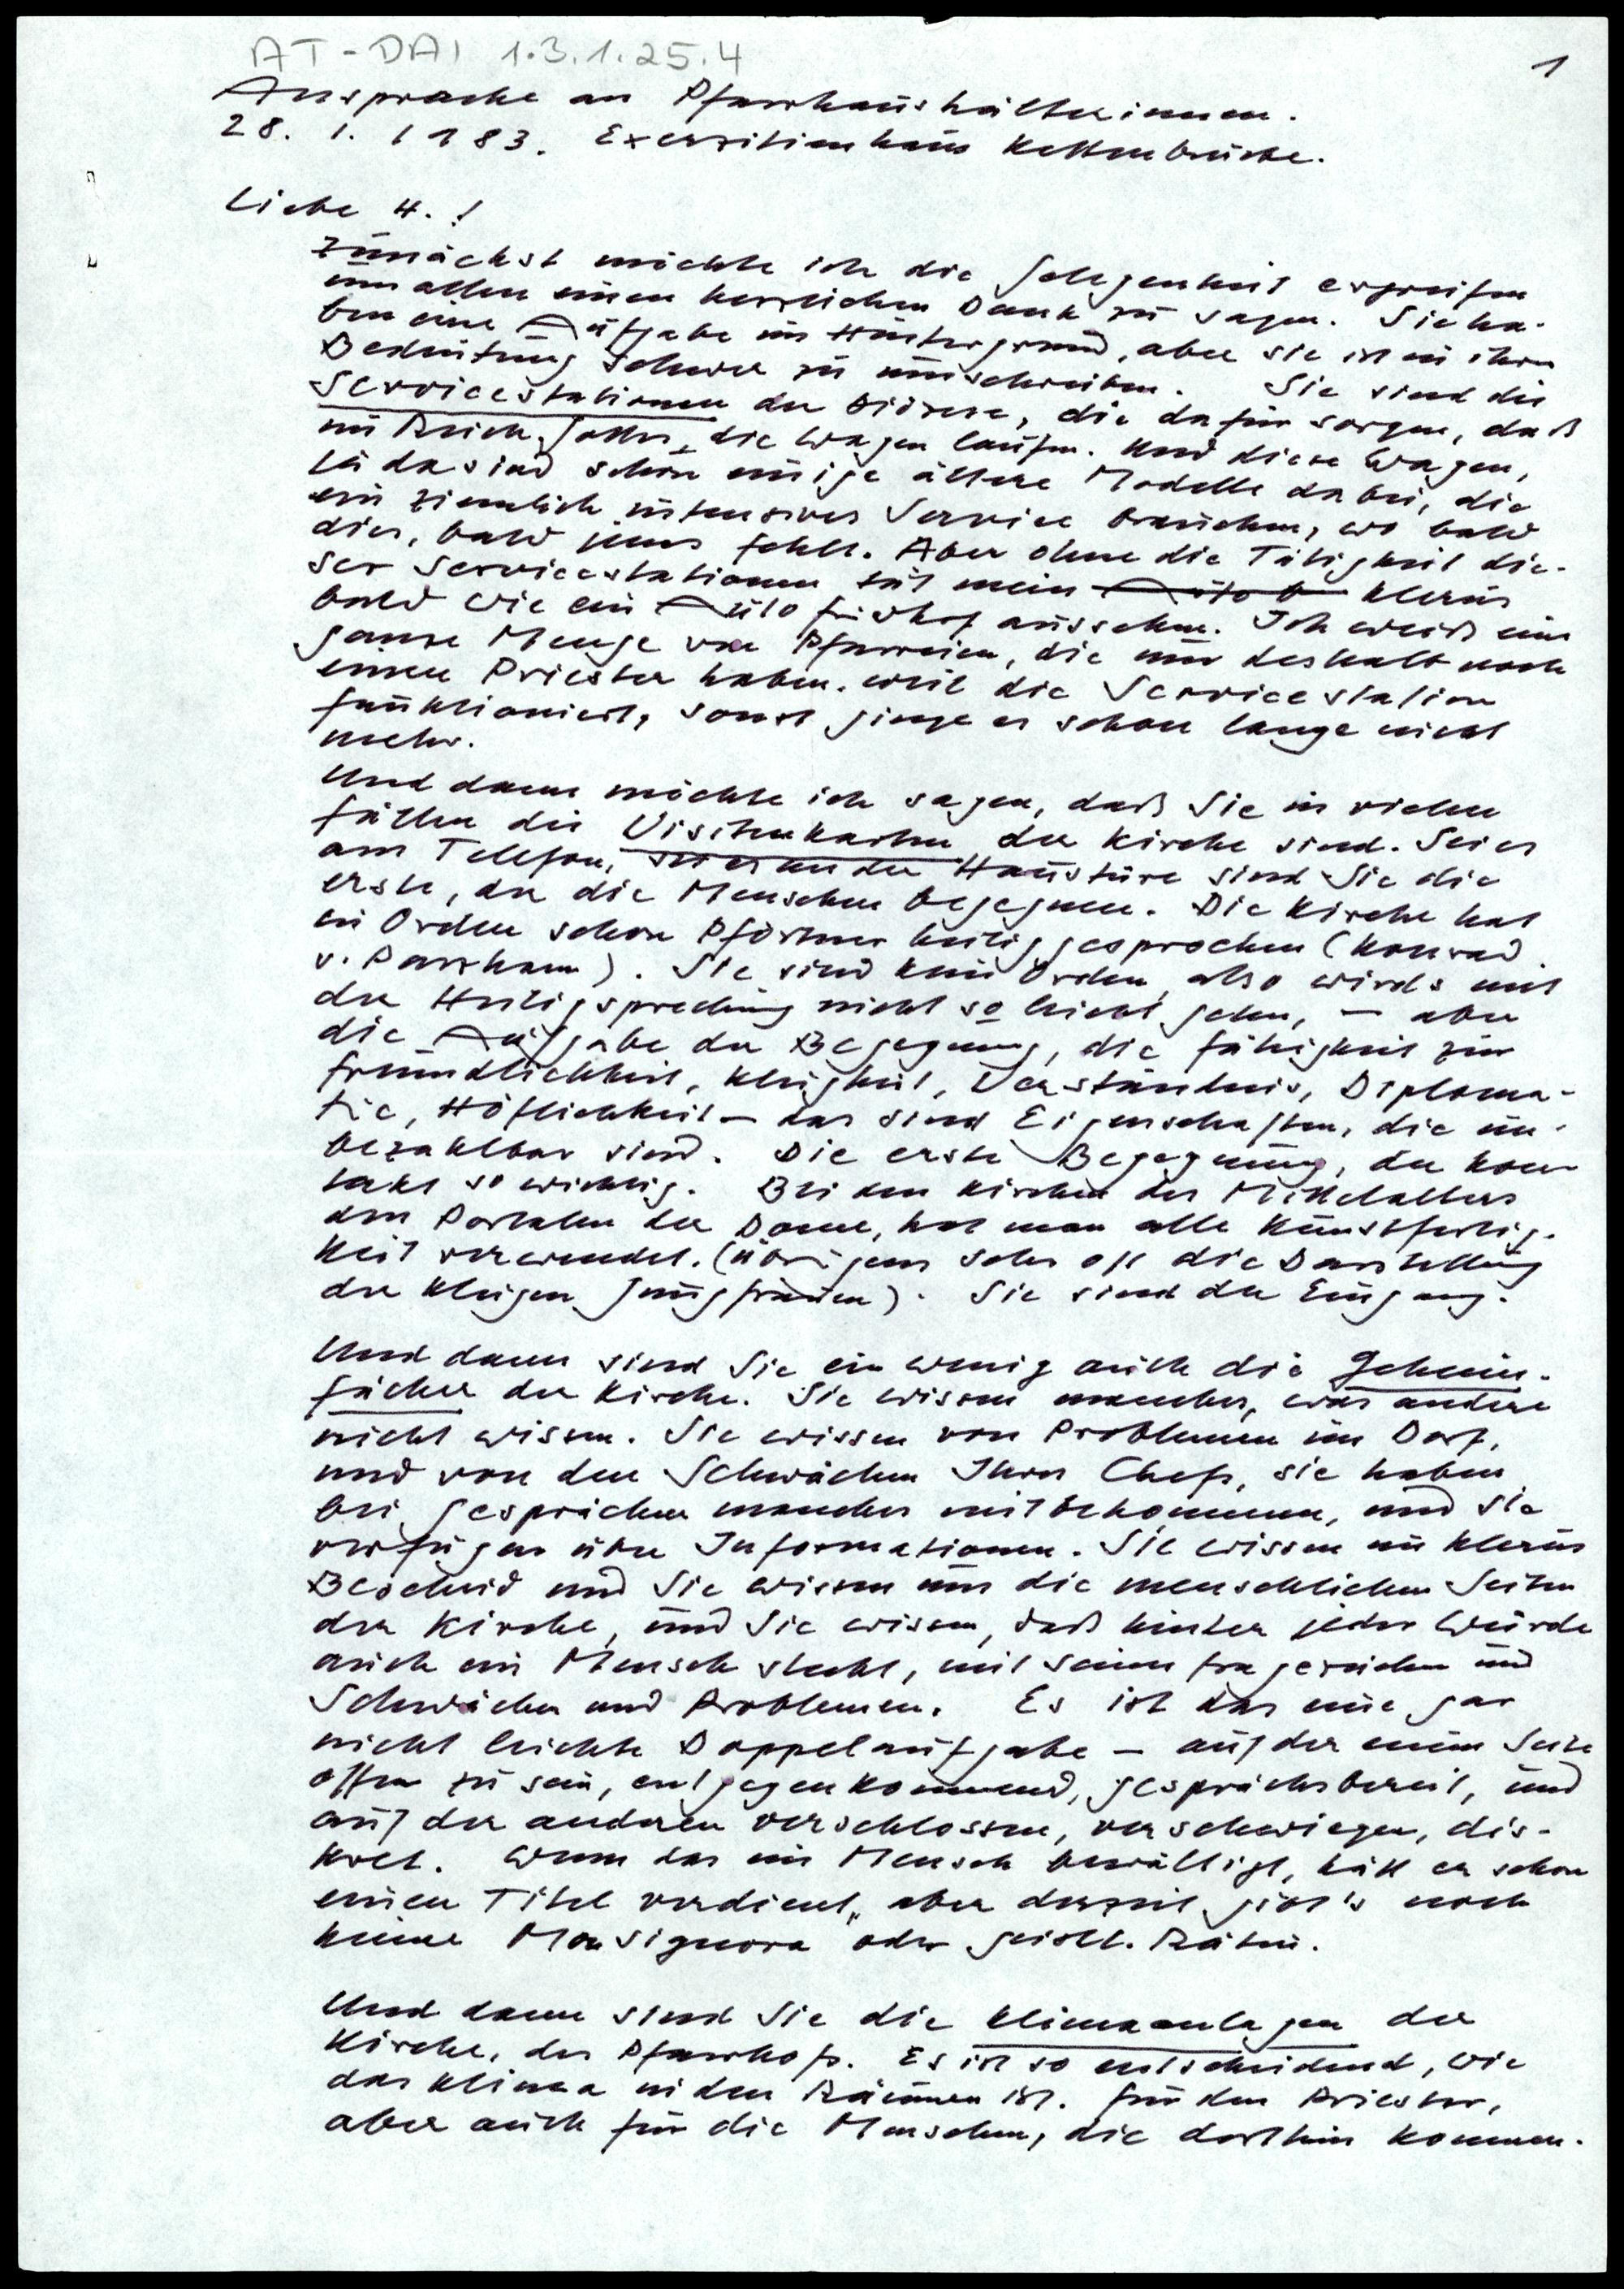 AT-DAI 1.3.1.25.4
1
Ansprache an Pfarrhaushälterinnen.
28. 1. 1983. Exerzitienhaus Kettenbrücke.
Liebe H.!
Zunächst möchte ich die Gelegenheit ergreifen
um allen einen herzlichen Dank zu sagen. Sie ha-
ben eine Aufgabe im Hintergrund, aber sie ist in ihrer
Bedeutung schwer zu umschreiben. Sie sind die
Servicestationen der Diözese, die dafür sorgen, daß
im Reich Gottes, die Wagen laufen. Und diese Wagen,
ja da sind schon einige ältere Modelle dabei, die
ein ziemlich intensives Service brauchen, wo bald
dies, bald jenes fehlt. Aber ohne die Tätigkeit die-
ser Servicestationen tät mein Klerus
bald wie ein Autofriedhof aussehen. Ich weiß eine
ganze Menge von Pfarreien, die nur deshalb noch
einen Priester haben, weil die Servicestation
funktioniert, sonst ginge es schon lange nicht
mehr.
Und dann möchte ich sagen, daß Sie in vielen
Fällen die Visitenkarten der Kirche sind. Sei es
am Telefon, sei es an der Haustüre sind Sie die
erste, der die Menschen begegnen. Die Kirche hat
in Orden schon Pförtner heiliggesprochen (Konrad
v. Parzham). Sie sind kein Orden, also wirds mit
der Heiligsprechung nicht so leicht gehen, – aber
die Aufgabe der Begegnung, die Fähigkeit zur
Freundlichkeit, Klugheit, Verständnis, Diploma-
tie, Höflichkeit – das sind Eigenschaften, die un-
bezahlbar sind. Die erste Begegnung, der Kon-
takt so wichtig. Bei den Kirchen des Mittelalters
den Portalen der Dome, hat man alle Kunstfertig-
keit verwendet. (übrigens sehr oft die Darstellung
der klugen Jungfrauen). Sie sind der Eingang.
Und dann sind Sie ein wenig auch die Geheim-
fächer der Kirche. Sie wissen manches, was andere
nicht wissen. Sie wissen von Problemen im Dorf,
und von den Schwächen Ihres Chefs, sie haben
bei Gesprächen manches mitbekommen, und sie
verfügen über Informationen. Sie wissen im Klerus
Bescheid und Sie wissen um die menschlichen Seiten
der Kirche, und Sie wissen, daß hinter jeder Würde
auch ein Mensch steht, mit seinen Fragezeichen und
Schwächen und Problemen. Es ist das eine gar
nicht leichte Doppelaufgabe – auf der einen Seite
offen zu sein, entgegenkommend, gesprächsbereit, und
auf der anderen verschlossen, verschwiegen, dis-
kret. Wenn das ein Mensch bewältigt, hätt er schon
einen Titel verdient, aber derzeit gibt's noch
keine Monsignora oder geistl. Rätin.
Und dann sind Sie die Klimaanlagen der
Kirche, des Pfarrhofs. Es ist so entscheidend, wie
das Klima in den Räumen ist. Für den Priester,
aber auch für die Menschen, die dorthin kommen.